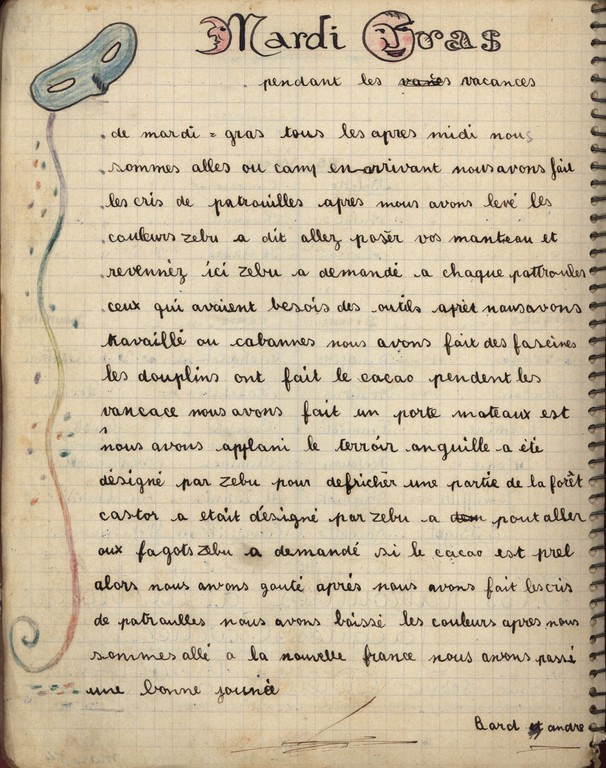 Mardi Gras
pendant les vacances
de mardi = gras tous les apres midi nous
sommes alles ou camp en arrivant nous avons fait
les cris de patrouilles apres nous avons levé les
couleurs zebu a dit allez poser vos manteau et
revennéz ici zebu a demandé a chaque pattroules
ceux qui avaient besois des outils aprèt nous avons
travaillé ou cabannes nous avons fait des fascines
les douplins ont fait le cacao pendent les
vancace nous avons fait un porte mateaux est
nous avons applani le terroir anguille a été
désigné par zebu pour defricher une partie de la forêt
castor a etait désigné par zebu a pout aller
aux fagots zebu a demandé si le cacao est pret
alors nous avons gouté aprés nous avons fait les cris
de patroulles nous avons baissé les couleurs apres nous
sommes allé a la nouvelle france nous avons passé
une bonne jounée
Bard et andre